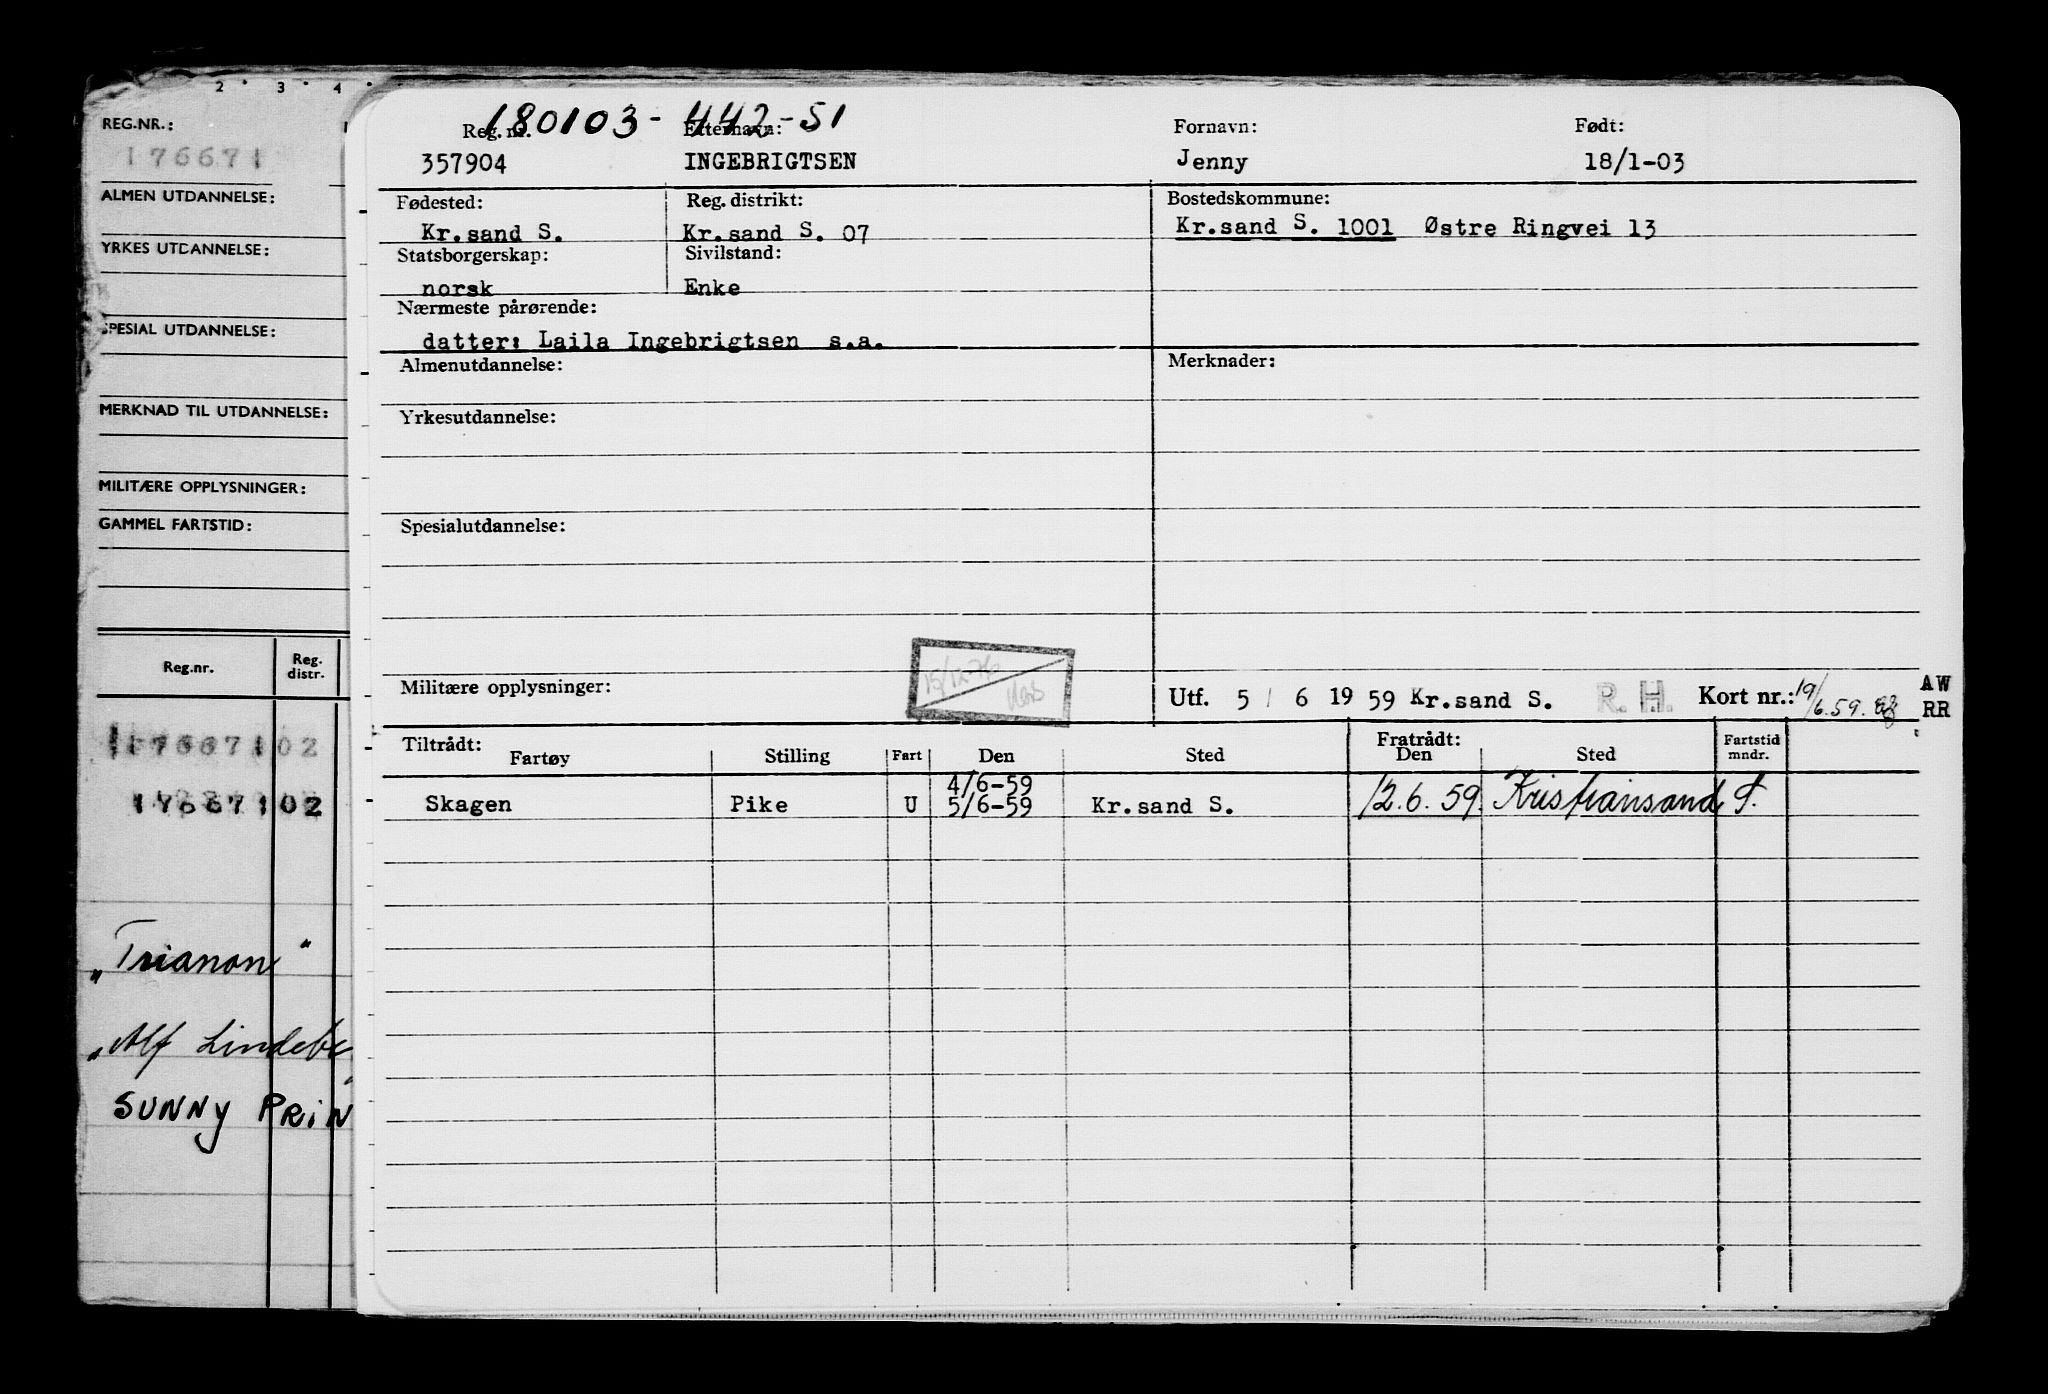 2 3 4
REG.NR.:
176671
ALMEN UTDANNELSE:
YRKES UTDANNELSE:
SPESIAL UTDANNELSE:
MERKNAD TIL UTDANNELSE:
MILITÆRE OPPLYSNINGER:
GAMMEL FARTSTID:
Reg.nr. Reg. distr.
176671 02
176671 02
„Trianon"
„Alf Lindebe
SUNNY PRIN
180103-442-51
Reg. nr. Etternavn: Fornavn: Født:
357904 INGEBRIGTSEN Jenny 18/1-03
Fødested: Reg. distrikt: Bostedskommune:
Kr.sand S. Kr.sand S. 07 Kr.sand S. 1001 Østre Ringvei 13
Statsborgerskap: Sivilstand:
norsk Enke
Nærmeste pårørende:
datter: Laila Ingebrigtsen s.a.
Almenutdannelse: Merknader:
Yrkesutdannelse:
Spesialutdannelse:
15/12-76
Militære opplysninger: Utf. 5/6 1959 Kr.sand S. R. H. Kort nr.: 19/6.59. AW
RR
Tiltrådt: Fratrådt: Fartstid
Fartøy Stilling Fart Den Sted Den Sted mndr.
4/6-59
Skagen Pike U 5/6-59 Kr.sand S. 12.6.59. Kristiansand S.